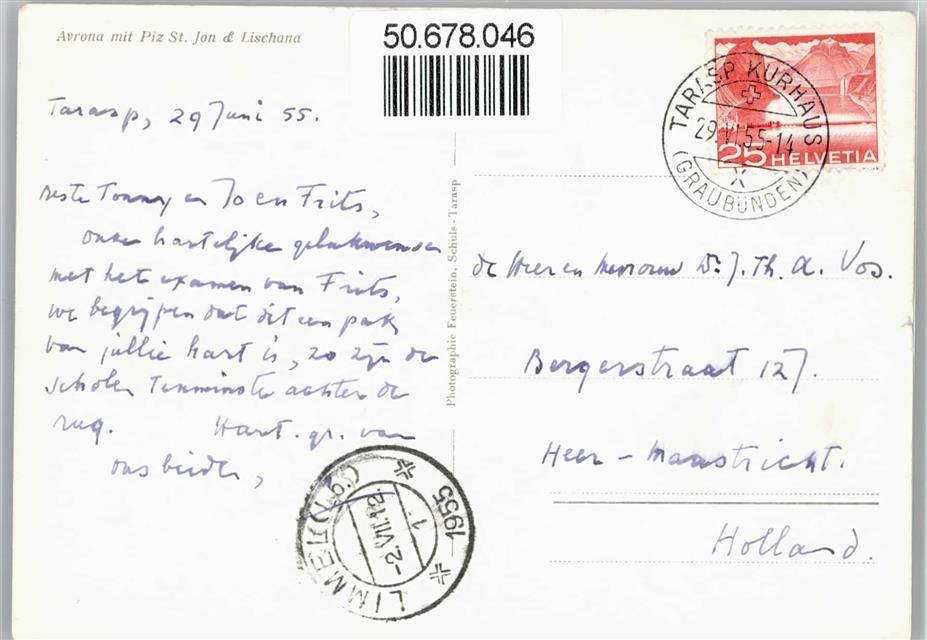 Avrona mit Piz St. Jon & Lischana
50.678.046
TARASP KURHAUS
29.VI.55-14
(GRAUBÜNDEN)
25 HELVETIA
Tarasp, 29 Juni 55.
Beste Tonny en Jo en Frits,
onze hartelijke gelukwensen
met het examen van Frits,
we begrijpen dat dit een pak
van jullie hart is, zo zijn de
scholen tenminste achter de
rug. Hart. gr. van
ons beiden,
Photographie Feuerstein, Schuls-Tarasp
de Heer en Mevrouw Dr. J. Th. A. Vos.
Bergerstraat 127.
Heer - Maastricht.
Holland.
LIMMEL
1955
-2.VII.12
1